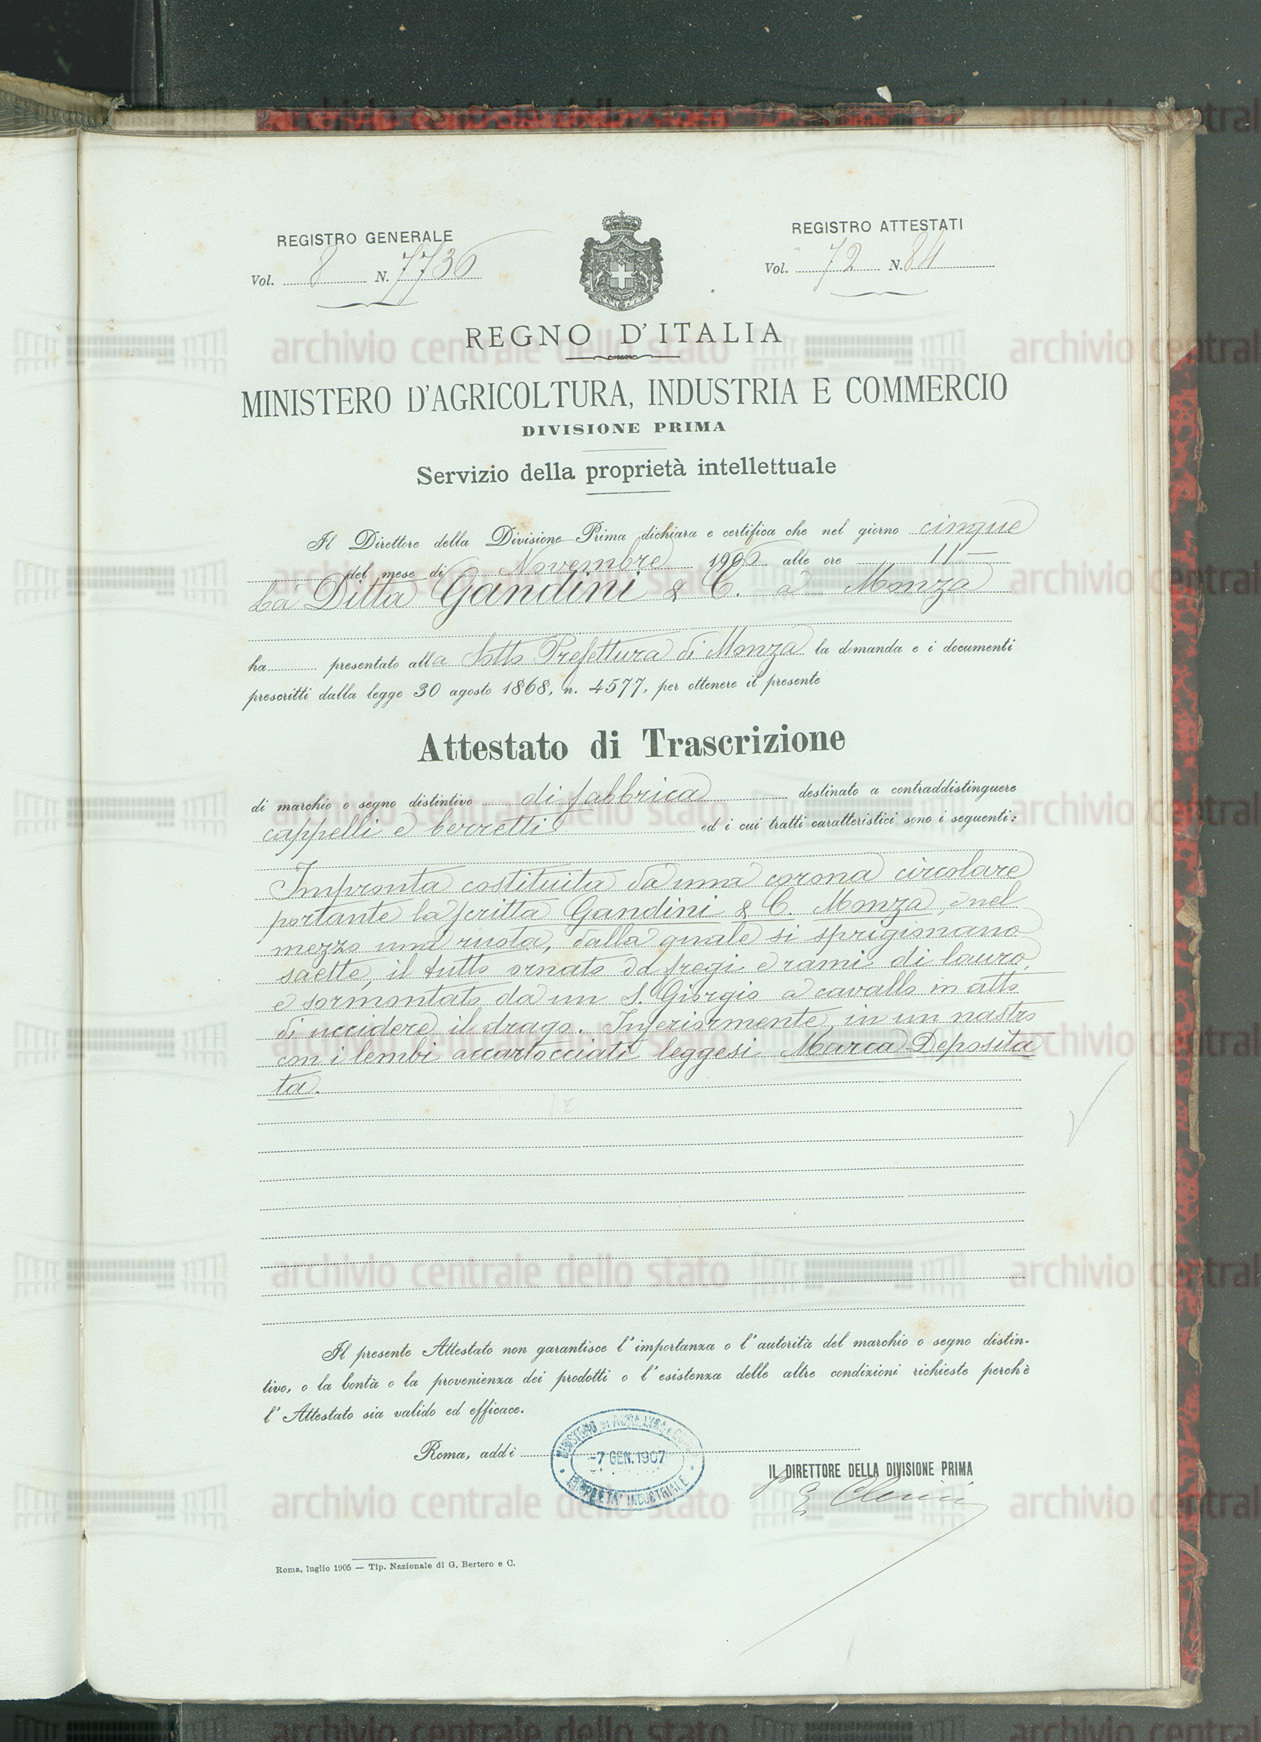 REGISTRO GENERALE
Vol. 8 N. 7736
REGISTRO ATTESTATI
Vol. 72 N. 84
REGNO D'ITALIA
MINISTERO D'AGRICOLTURA, INDUSTRIA E COMMERCIO
DIVISIONE PRIMA
Servizio della proprietà intellettuale
Il Direttore della Divisione Prima dichiara e certifica che nel giorno cinque
del mese di Novembre 1906 alle ore 11 —
La Ditta Gandini & C. a Monza
ha presentato alla Sotto Prefettura di Monza la domanda e i documenti
prescritti dalla legge 30 agosto 1868, n. 4577, per ottenere il presente
Attestato di Trascrizione
di marchio o segno distintivo di fabbrica destinato a contraddistinguere
cappelli e berretti ed i cui tratti caratteristici sono i seguenti:
Impronta costituita da una corona circolare
portante la scritta Gandini & C. Monza, e nel
mezzo una ruota, dalla quale si sprigionano
saette, il tutto ornato da fregi e rami di lauro
e sormontato da un S. Giorgio a cavallo in atto
di uccidere il drago. Inferiormente, in un nastro
con i lembi accartocciati leggesi Marca Deposita
ta.
Il presente Attestato non garantisce l'importanza o l'autorità del marchio o segno distin-
tivo, o la bontà o la provenienza dei prodotti o l'esistenza delle altre condizioni richieste perchè
l'Attestato sia valido ed efficace.
Roma, addì
-7 GEN. 1907
IL DIRETTORE DELLA DIVISIONE PRIMA
Roma, luglio 1905 — Tip. Nazionale di G. Bertero e C.
archivio centrale dello stato